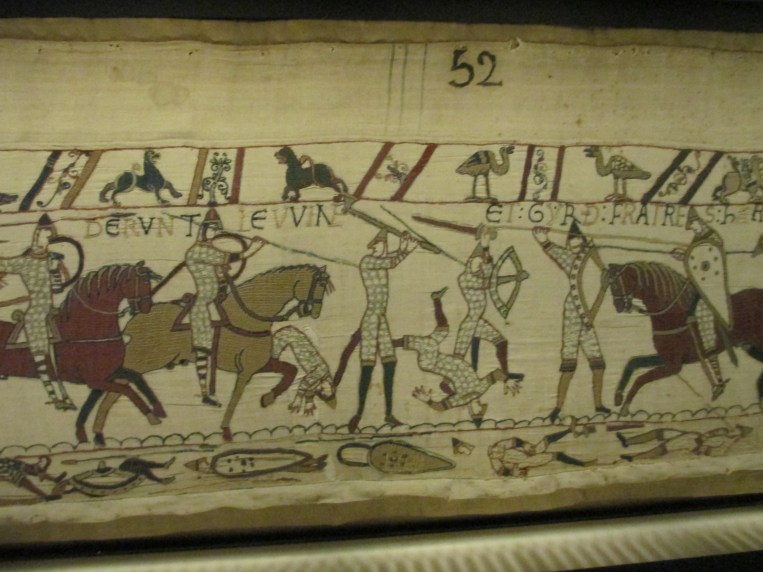 52
DERVNT LEVVINE ET: GYRÐ: FRATRES: hA